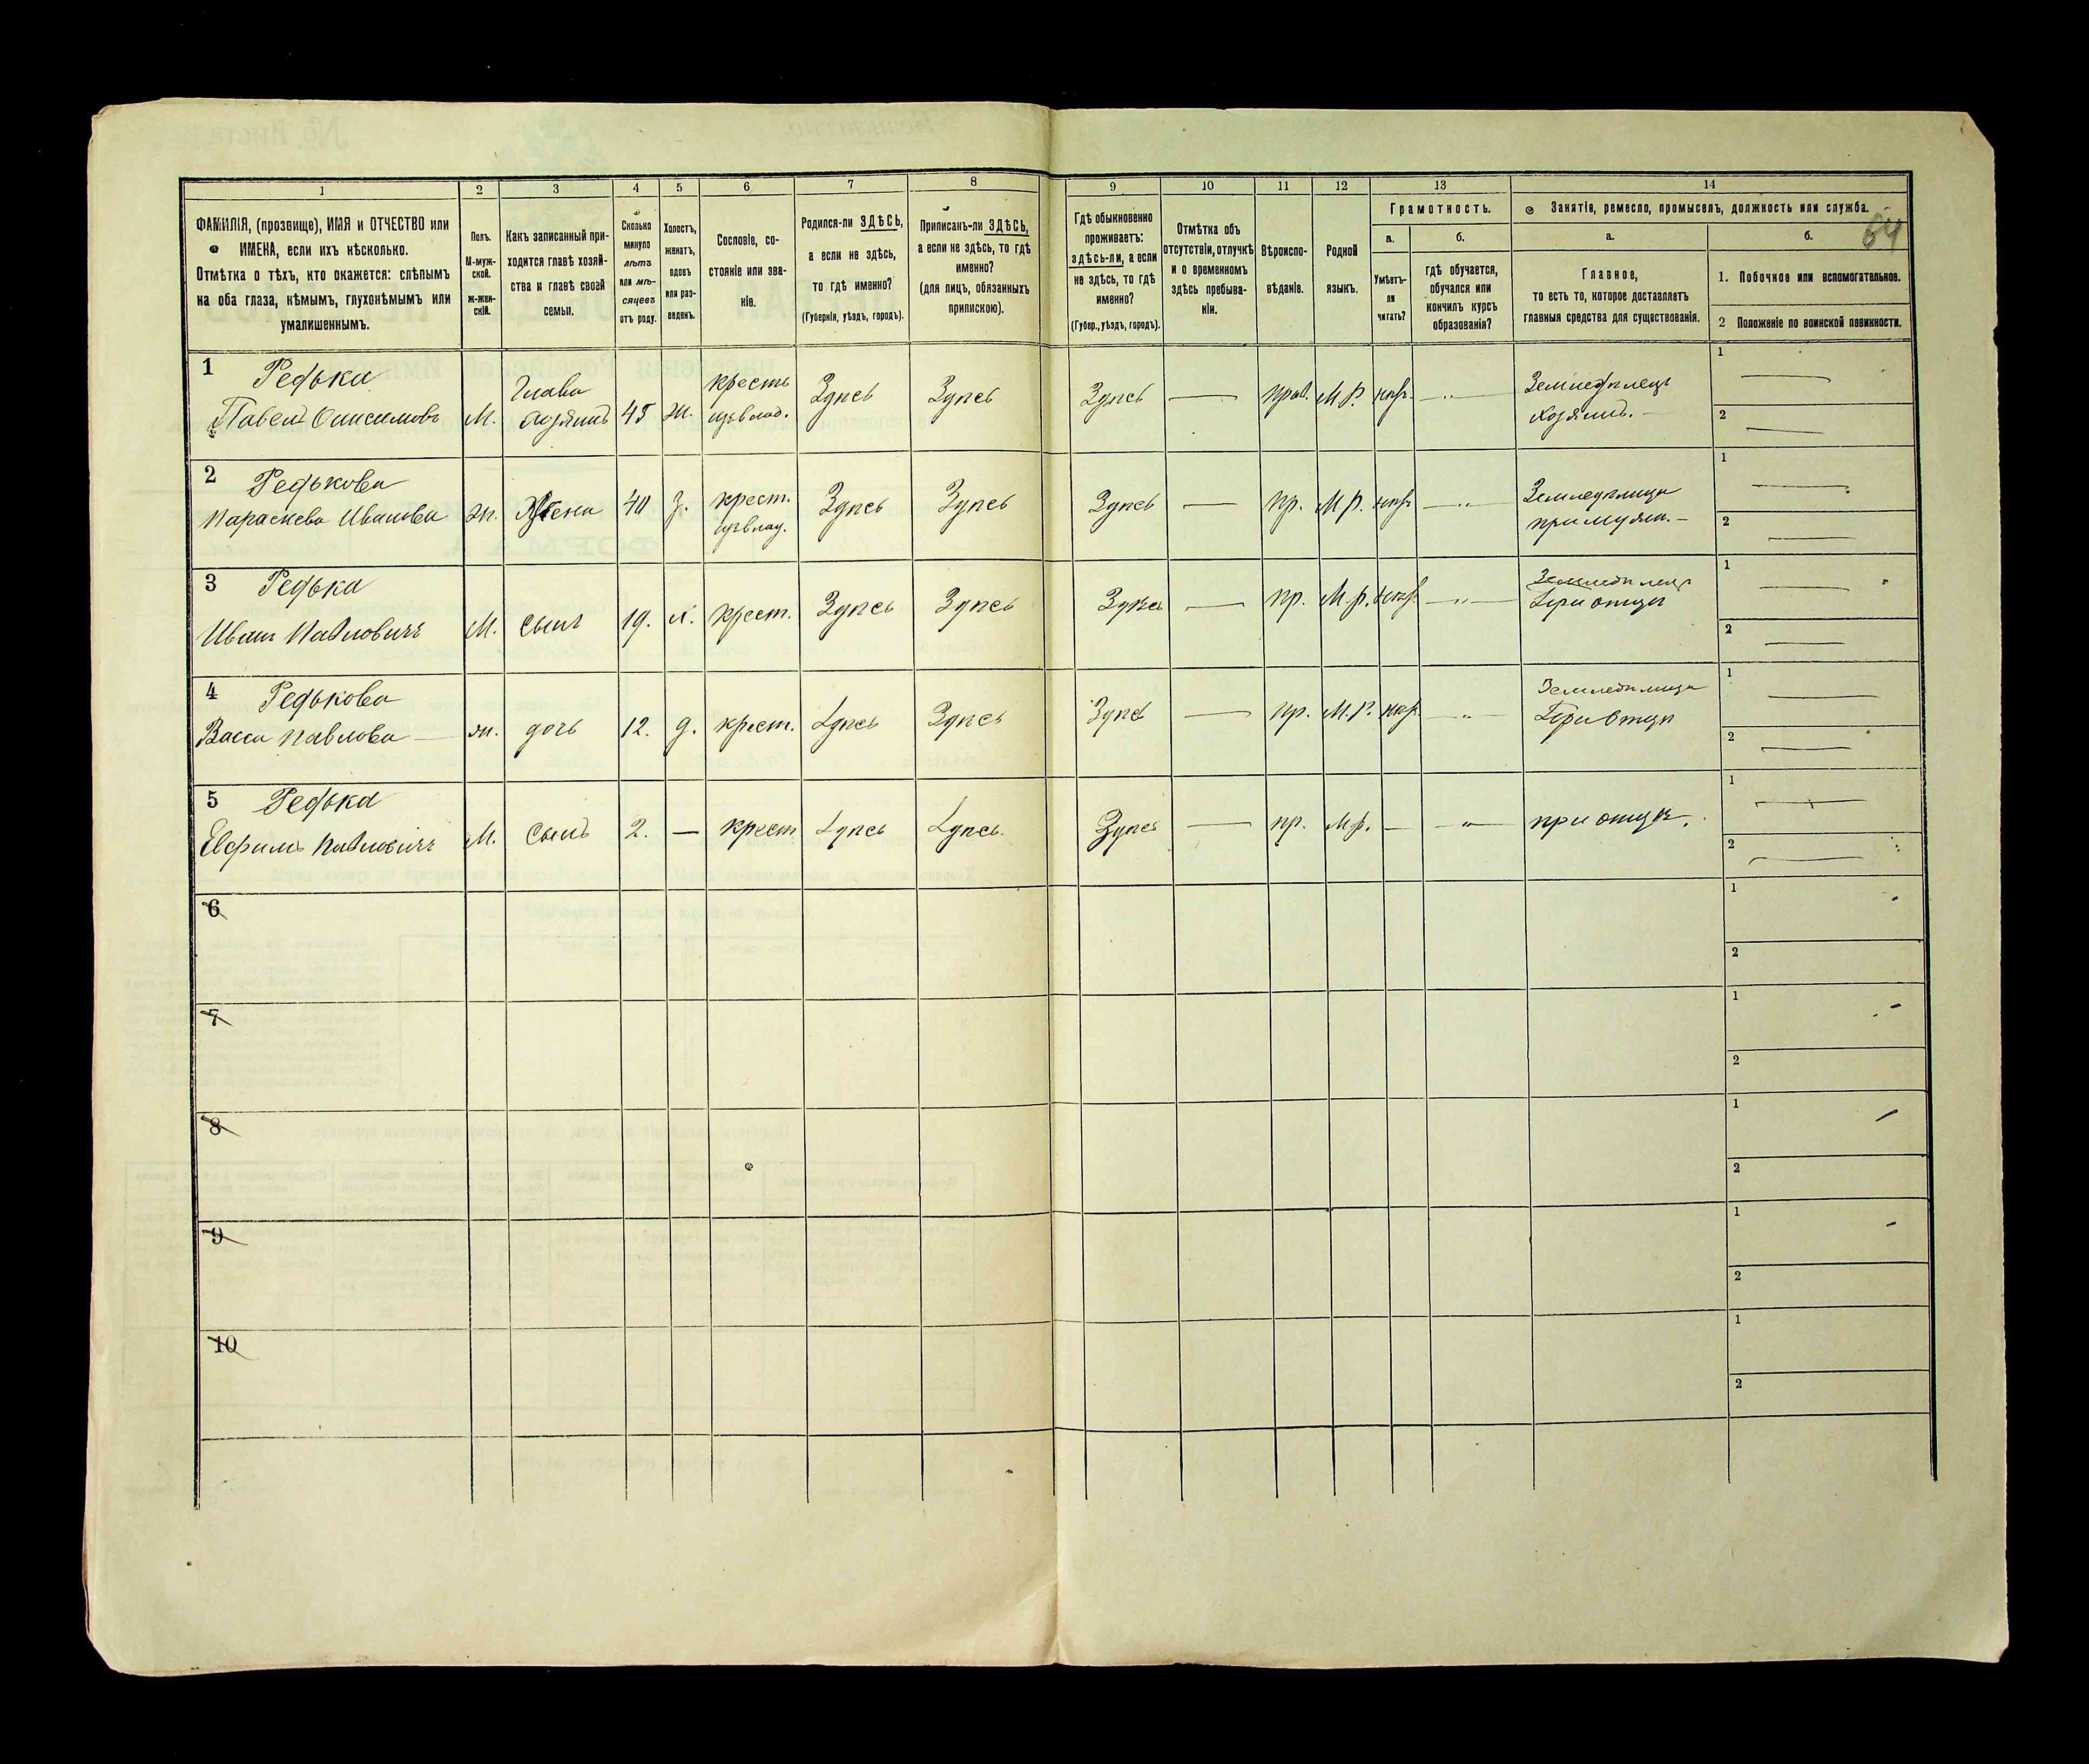 1 2 3 4 5 6 7 8 9 10 11 12 13 14
ФАМИЛІЯ, (прозвище), ИМЯ и ОТЧЕСТВО или
ИМЕНА, если ихъ нѣсколько.
Отмѣтка о тѣхъ, кто окажется: слѣпымъ
на оба глаза, нѣмымъ, глухонѣмымъ или
умалишеннымъ.
Полъ.
М-муж-
ской.
ж-жен-
скій.
Какъ записанный при-
ходится главѣ хозяй-
ства и главѣ своей
семьи.
Сколько
минуло
лѣтъ
или мѣ-
сяцевъ
отъ роду.
Холостъ,
женатъ,
вдовъ
или раз-
веденъ.
Сословіе, со-
стояніе или зва-
ніе.
Родился-ли ЗДѢСЬ,
а если не здѣсь,
то гдѣ именно?
(Губернія, уѣздъ, городъ).
Приписанъ-ли ЗДѢСЬ,
а если не здѣсь, то гдѣ
именно?
(для лицъ, обязанныхъ
припискою).
Гдѣ обыкновенно
проживаетъ:
здѣсь-ли, а если
не здѣсь, то гдѣ
именно?
(Губер., уѣздъ, городъ).
Отмѣтка объ
отсутствіи, отлучкѣ
и о временномъ
здѣсь пребыва-
ніи.
Вѣроиспо-
вѣданіе.
Родной
языкъ.
Грамотность.
а.
Умѣетъ-
ли
читать?
б.
гдѣ обучается,
обучался или
кончилъ курсъ
образованія?
Занятіе, ремесло, промыселъ, должность или служба.
64
а.
Главное,
то есть то, которое доставляетъ
главныя средства для существованія.
б.
1. Побочное или вспомогательное.
2 Положеніе по воинской повинности.
1 Редька
Павелъ Онисимовъ
М.
Глава
хозяинъ
45
ж.
кресть
изъ влад.
Здѣсь
Здѣсь
Здѣсь
—
прав.
М Р.
нкр.
— „ —
Земледѣлецъ
хозяинъ. —
1 —
2 —
2 Редькова
Параскева Иванова
ж.
Жена
40
З.
крест.
изъ влад.
Здѣсь
Здѣсь
Здѣсь
—
пр.
М р.
нкр
— „ —
Земледѣлица
при мужѣ. —
1 —
2 —
3 Редька
Иванъ Павловичъ
М.
сынъ
19.
х.
крест.
Здѣсь
Здѣсь
Здѣсь
—
пр.
М. р.
нкр.
— „ —
Земледѣлецъ
При отцѣ
1 —
2 —
4 Редькова
Васса Павлова —
ж.
дочь
12.
д.
крест.
Здѣсь
Здѣсь
Здѣсь
—
пр.
М. Р.
нкр
— „ —
Земледѣлица
При отцѣ
1 —
2 —
5 Редька
Евфимъ Павловичъ
М.
Сынъ
2.
—
крест
Здѣсь
Здѣсь.
Здѣсь
—
пр.
М р.
—
— „ —
при отцѣ.
1 —
2 —
6
1
2
7
1
2
8
1
2
9
1
2
10
1
2